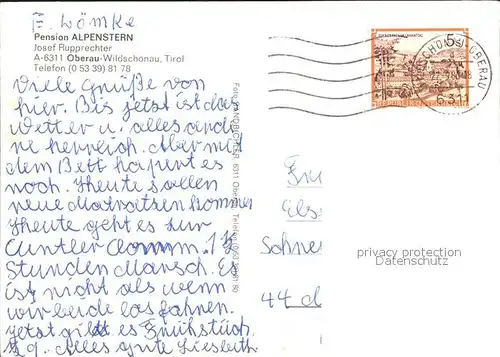 F. Lömke
Pension ALPENSTERN
Josef Rupprechter
A-6311 Oberau-Wildschönau, Tirol
Telefon (0 53 39) 81 78
Viele Grüße von
hier. Bis jetzt ist das
Wetter u. alles ande
re herrlich. Aber mit
dem Bett hapert es
noch. Heute sollen
neue Matratzen kommen
Heute geht es zur
1½
Stunden Marsch. Es
ist nicht als wenn
wir beide losfahren.
Jetzt gibt es Frühstück
Alles gute Liesbeth
6311 Oberau
5
OBERAU
6311
Schne
44
privacy protection
Datenschutz